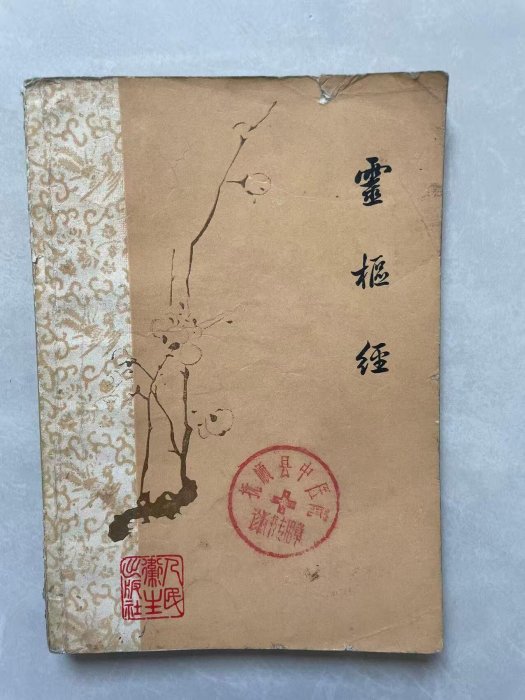 靈樞經
抚顺县中医院
人民
衞生
出版社